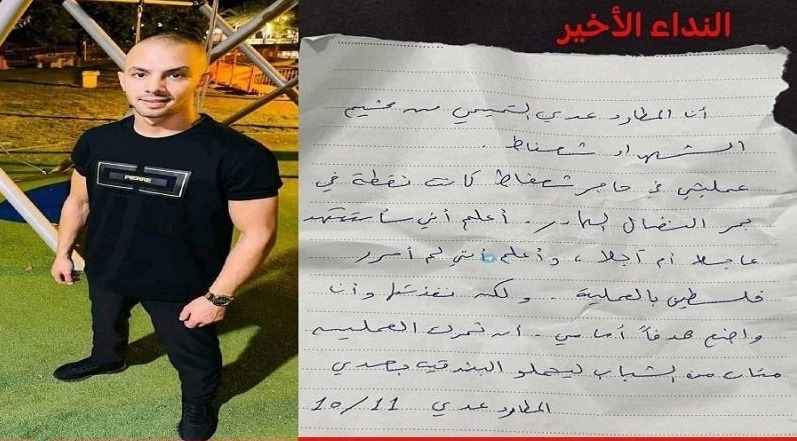 النداء الأخير
أنا المطارد عدي التميمي من مخيم
الشهداء شعفاط .
عمليتي في حاجز شعفاط كانت نقطة في
بحر النضال الهادر . أعلم أني سأستشهد
عاجلا أم آجلا ، وأعلم أنني لم أحرر
فلسطين بالعملية . ولكن نفذتها وأنا
واضع هدفاً أمامي . أن تحرك العملية
مئات من الشباب ليحملو البندقية بعدي
المطارد عدي 11/10
PIERRE